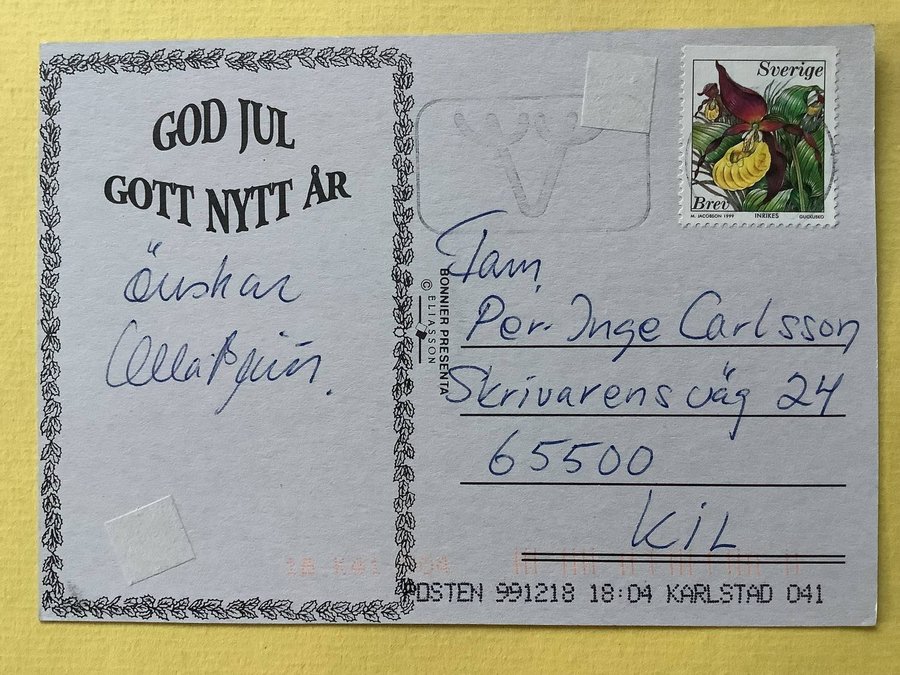 GOD JUL
GOTT NYTT ÅR
önskar
Sverige
Brev
M. JACOBSON 1999 INRIKES
BONNIER PRESENTA
© ELIASSON
Fam.
Per-Inge Carlsson
Skrivarens väg 24
65500
KIL
POSTEN 991218 18:04 KARLSTAD 041